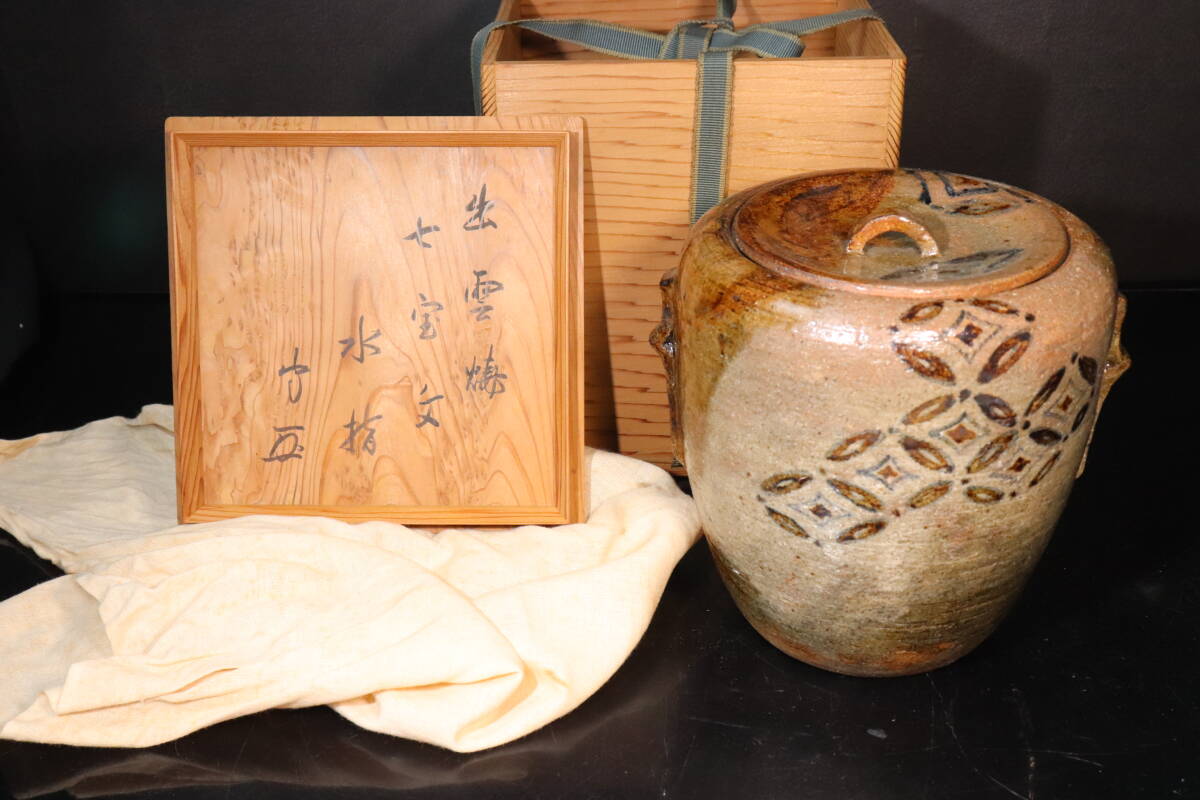 出雲焼
七宝文
水指